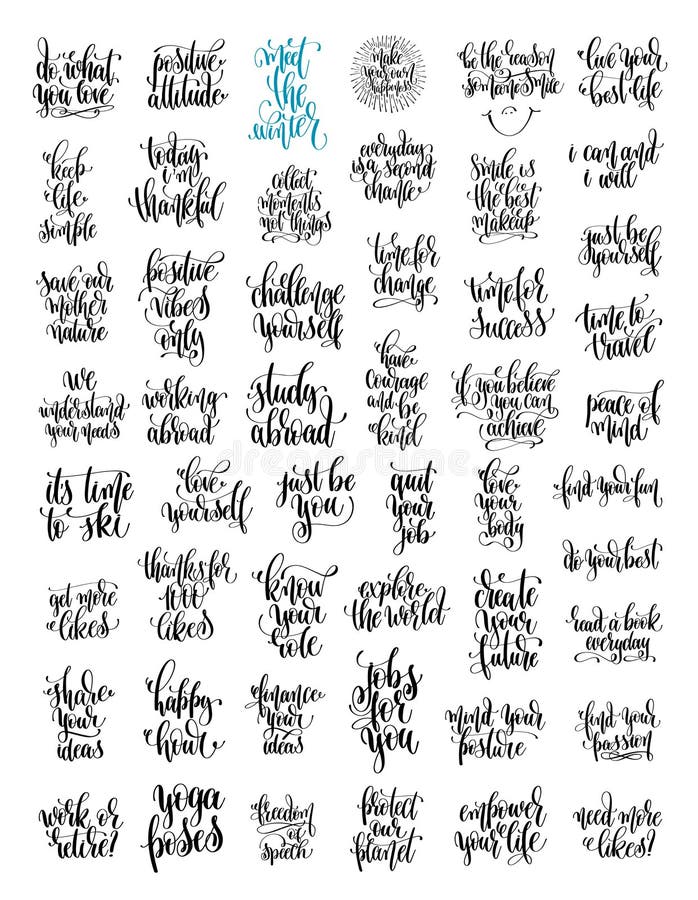 do what
you love
positive
attitude
meet
the
winter
make
your own
happiness
be the reason
someone smile
live your
best life
keep
life
simple
today
i'm
thankful
collect
moments
not things
everyday
is a second
chance
smile is
the best
makeup
i can and
i will
just be
yourself
save our
mother
nature
positive
vibes
only
challenge
yourself
time for
change
time for
success
time to
travel
we
understand
your needs
working
abroad
study
abroad
have
courage
and be
kind
if you believe
you can
achieve
peace of
mind
it's time
to ski
love
yourself
just be
you
quit
your
job
love
your
body
find your fun
do your best
get more
likes
thanks for
1000
likes
know
your
role
explore
the world
create
your
future
read a book
everyday
share
your
ideas
happy
hour
finance
your
ideas
jobs
for
you
mind your
posture
find your
passion
work or
retire?
yoga
poses
freedom
of
speech
protect
our
planet
empower
your life
need more
likes?
dreamstime.com